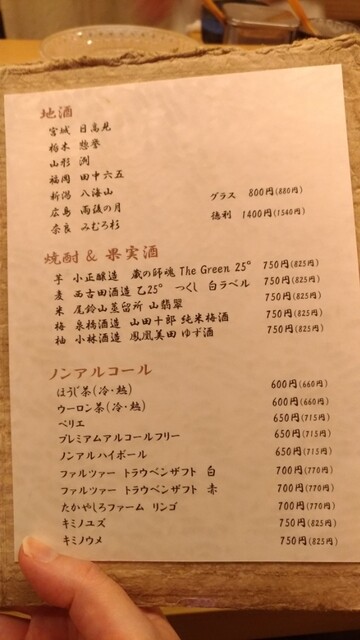 地酒
宮城 日高見
栃木 惣誉
山形 洌
福岡 田中六五
新潟 八海山
グラス 800円(880円)
広島 雨後の月
徳利 1400円(1540円)
奈良 みむろ杉
焼酎 & 果実酒
芋 小正醸造 蔵の師魂 The Green 25° 750円(825円)
麦 西吉田酒造 乙25° つくし 白ラベル 750円(825円)
米 尾鈴山蒸留所 山翡翠 750円(825円)
梅 泉橋酒造 山田十郎 純米梅酒 750円(825円)
柚 小林酒造 鳳凰美田 ゆず酒 750円(825円)
ノンアルコール
ほうじ茶(冷・熱) 600円(660円)
ウーロン茶(冷・熱) 600円(660円)
ペリエ 650円(715円)
プレミアムアルコールフリー 650円(715円)
ノンアルハイボール 650円(715円)
ファルツァー トラウベンザフト 白 700円(770円)
ファルツァー トラウベンザフト 赤 700円(770円)
たかやしろファーム リンゴ 700円(770円)
キミノユズ 750円(825円)
キミノウメ 750円(825円)